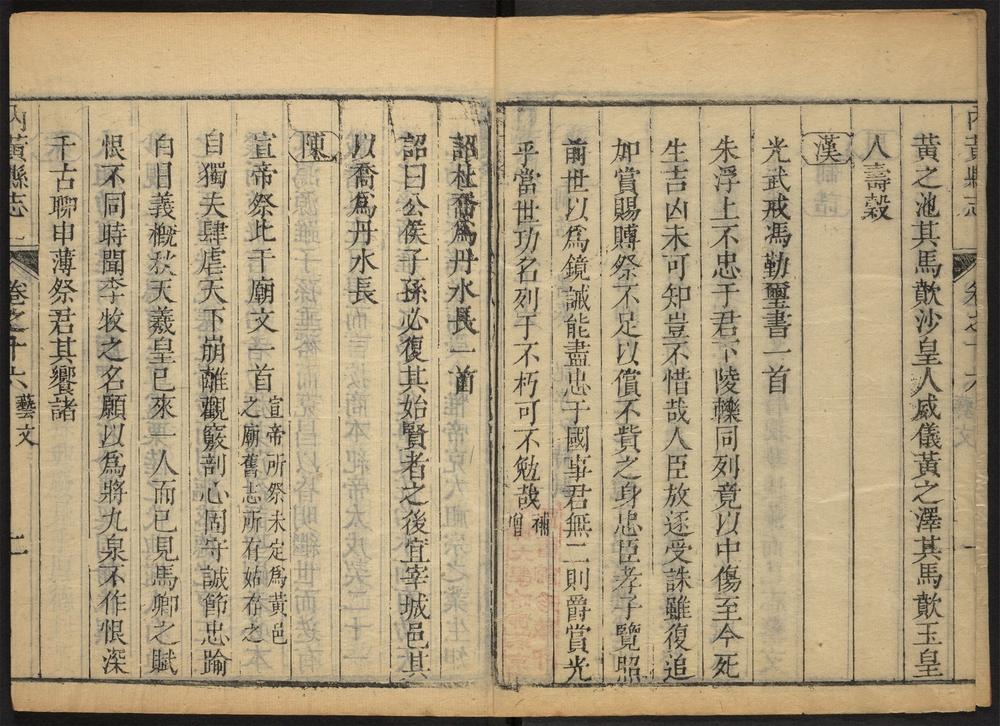 黄之池其馬歕沙皇人威儀黄之澤其馬歕玉皇
人壽穀
漢
光武戒馮勤璽書一首
朱浮上不忠于君下陵轢同列竟以中傷至今死
生吉凶未可知豈不惜哉人臣放逐受誅雖復追
加賞賜賻祭不足以償不貲之身忠臣孝子覽照
前世以爲鏡誡能盡忠于國事君無二則爵賞光
乎當世功名列于不朽可不勉哉
補
增
詔杜喬爲丹水長一首
詔曰公侯子孫必復其始賢者之後宜宰城邑其
以喬爲丹水長
陳
宣帝祭比干廟文一首
宣帝所祭未定爲黄邑
之廟舊志所有姑存之
自獨夫肆虐天下崩離觀竅剖心固守誠節忠踰
白日義概秋天羲皇已來一人而已見馬卿之賦
恨不同時聞李牧之名願以爲將九泉不作恨深
千古聊申薄祭君其饗諸
内黄縣志
卷之十六
藝文
二